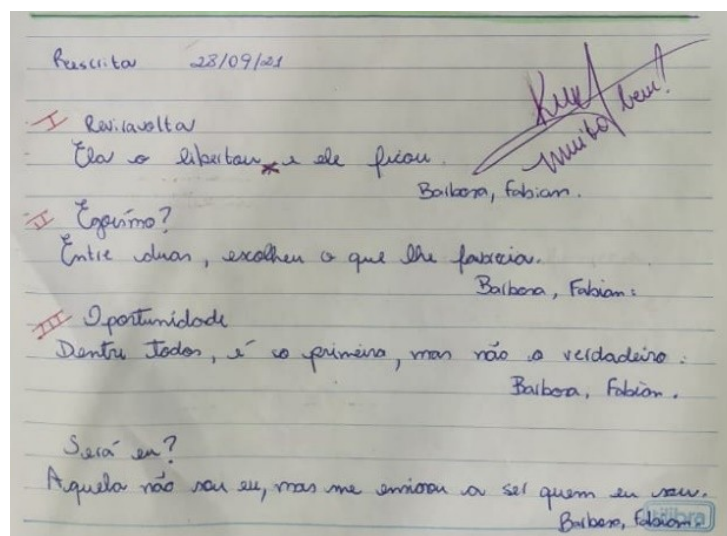 Reescrita 28/09/21
muito bem!
I Reviravolta
Ela o libertou e ele ficou.
Barbosa, Fabian.
II Egoísmo?
Entre duas, escolheu o que lhe favorecia.
Barbosa, Fabian.
III Oportunidade
Dentre Todos, é o primeiro, mas não o verdadeiro.
Barbosa, Fabian.
Será eu?
Aquela não sou eu, mas me ensinou a ser quem eu sou.
Barbosa, Fabian.